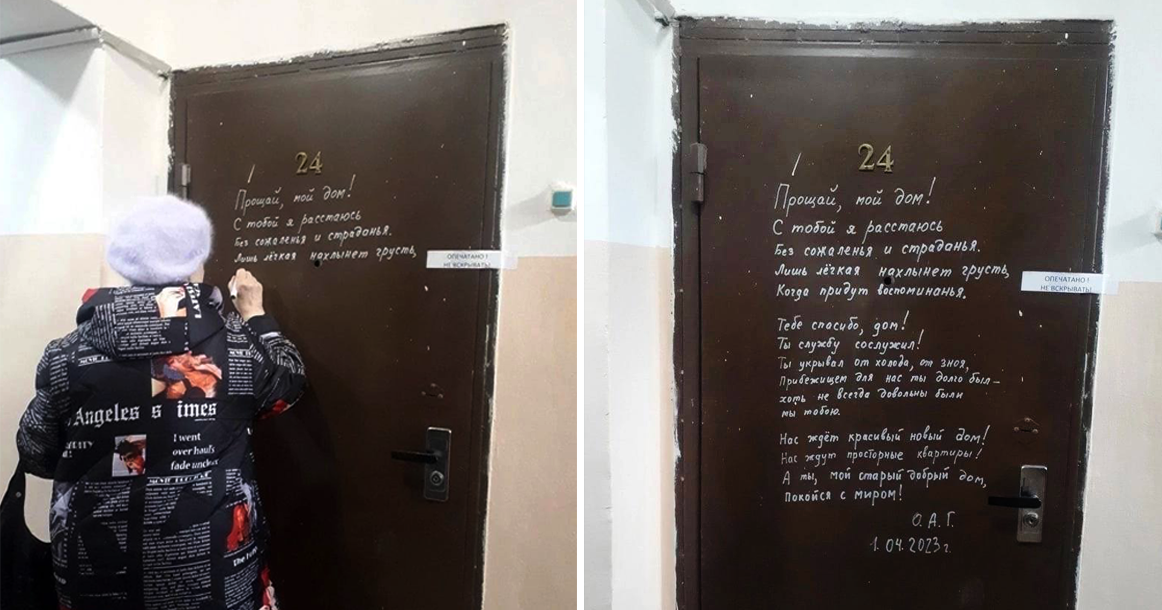 24
Прощай, мой дом!
С тобой я расстаюсь
Без сожаленья и страданья.
Лишь лёгкая нахлынет грусть,
ОПЕЧАТАНО!
НЕ ВСКРЫВАТЬ!
Angeles
imes
I went
over
fade
24
Прощай, мой дом!
С тобой я расстаюсь
Без сожаленья и страданья.
Лишь лёгкая нахлынет грусть,
Когда придут воспоминанья.
ОПЕЧАТАНО!
НЕ ВСКРЫВАТЬ!
Тебе спасибо, дом!
Ты службу сослужил!
Ты укрывал от холода, от зноя,
Прибежищем для нас ты долго был –
хоть не всегда довольны были
мы тобою.
Нас ждёт красивый новый дом!
Нас ждут просторные квартиры!
А ты, мой старый добрый дом,
покойся с миром!
О. А. Г.
1.04.2023г.